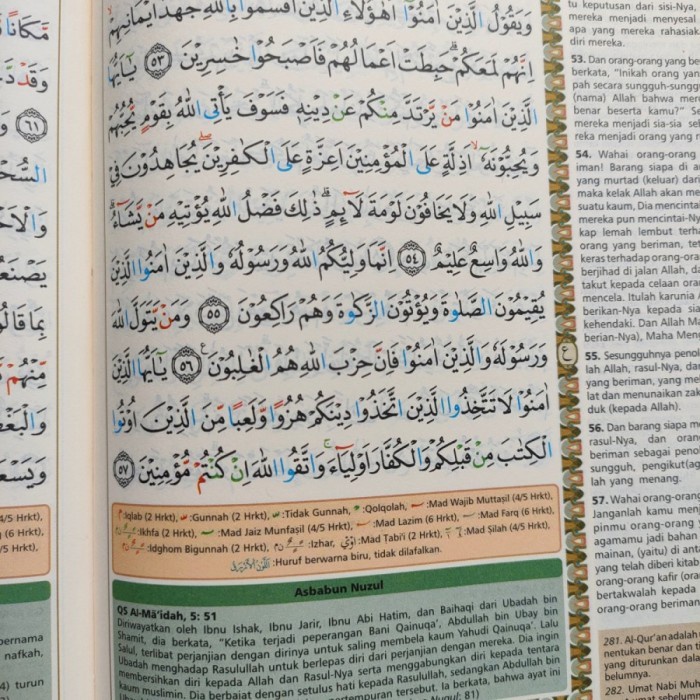 وَيَقُوْلُ الَّذِيْنَ اٰمَنُوْٓا اَهٰٓؤُلَاۤءِ الَّذِيْنَ اَقْسَمُوْا بِاللّٰهِ جَهْدَ اَيْمَانِهِمْۙ
اِنَّهُمْ لَمَعَكُمْۗ حَبِطَتْ اَعْمَالُهُمْ فَاَصْبَحُوْا خٰسِرِيْنَ ﴿٥٣﴾ يٰٓاَيُّهَا
الَّذِيْنَ اٰمَنُوْا مَنْ يَّرْتَدَّ مِنْكُمْ عَنْ دِيْنِهٖ فَسَوْفَ يَأْتِى اللّٰهُ بِقَوْمٍ يُّحِبُّهُمْ
وَيُحِبُّوْنَهٗٓۙ اَذِلَّةٍ عَلَى الْمُؤْمِنِيْنَ اَعِزَّةٍ عَلَى الْكٰفِرِيْنَۖ يُجَاهِدُوْنَ فِيْ
سَبِيْلِ اللّٰهِ وَلَا يَخَافُوْنَ لَوْمَةَ لَاۤىِٕمٍۗ ذٰلِكَ فَضْلُ اللّٰهِ يُؤْتِيْهِ مَنْ يَّشَاۤءُۗ
وَاللّٰهُ وَاسِعٌ عَلِيْمٌ ﴿٥٤﴾ اِنَّمَا وَلِيُّكُمُ اللّٰهُ وَرَسُوْلُهٗ وَالَّذِيْنَ اٰمَنُوا الَّذِيْنَ
يُقِيْمُوْنَ الصَّلٰوةَ وَيُؤْتُوْنَ الزَّكٰوةَ وَهُمْ رَاكِعُوْنَ ﴿٥٥﴾ وَمَنْ يَّتَوَلَّ اللّٰهَ
وَرَسُوْلَهٗ وَالَّذِيْنَ اٰمَنُوْا فَاِنَّ حِزْبَ اللّٰهِ هُمُ الْغٰلِبُوْنَ ࣖ ﴿٥٦﴾ يٰٓاَيُّهَا الَّذِيْنَ
اٰمَنُوْا لَا تَتَّخِذُوا الَّذِيْنَ اتَّخَذُوْا دِيْنَكُمْ هُزُوًا وَّلَعِبًا مِّنَ الَّذِيْنَ اُوْتُوا
الْكِتٰبَ مِنْ قَبْلِكُمْ وَالْكُفَّارَ اَوْلِيَاۤءَۚ وَاتَّقُوا اللّٰهَ اِنْ كُنْتُمْ مُّؤْمِنِيْنَ ﴿٥٧﴾
:Iqlab (2 Hrkt), :Gunnah (2 Hrkt), :Tidak Gunnah, :Qolqolah, :Mad Wajib Muttaşil (4/5 Hrkt),
:Ikhfa (2 Hrkt), :Mad Jaiz Munfaşil (4/5 Hrkt), :Mad Lazim (6 Hrkt), :Mad Farq (6 Hrkt),
:Idghom Bigunnah (2 Hrkt), :Izhar, :Mad Tabi'i (2 Hrkt), :Mad Şilah (4/5 Hrkt),
:Huruf berwarna biru, tidak dilafalkan.
Asbabun Nuzul
QS Al-Mā'idah, 5: 51
Diriwayatkan oleh Ibnu Ishak, Ibnu Jarir, Ibnu Abi Hatim, dan Baihaqi dari Ubadah bin
Shamit, dia berkata, "Ketika terjadi peperangan Bani Qainuqa', Abdullah bin Ubay bin
Salul, terlibat perjanjian dengan dirinya untuk saling membela kaum Yahudi Qainuqa'. Lalu
Ubadah menghadap Rasulullah untuk berlepas diri dari perjanjian dengan mereka. Dia ingin
membersihkan diri kepada Allah dan Rasul-Nya serta menggabungkan diri kepada tentara
kaum muslimin. Dia berbaiat dengan setulus hati kepada Rasulullah, sedangkan Abdullah bin
tersebut. Ia berkata, bahwa ayat ini
81)
tu keputusan dari sisi-Nya,
mereka menjadi menyesal
apa yang mereka rahasiak
diri mereka.
53. Dan orang-orang yang be
berkata, "Inikah orang yan
pah secara sungguh-sungg
(nama) Allah bahwa mer
benar beserta kamu?" Se
mereka menjadi sia-sia seh
reka menjadi orang yang
54. Wahai orang-orang
iman! Barang siapa di a
yang murtad (keluar) dari
maka kelak Allah akan me
suatu kaum, Dia mencintai
mereka pun mencintai-Ny
kap lemah lembut terha
orang yang beriman, tet
keras terhadap orang-oran
berjihad di jalan Allah, da
takut kepada celaan ora
mencela. Itulah karunia
berikan-Nya kepada sia
kehendaki. Dan Allah Ma
berian-Nya), Maha Meng
55. Sesungguhnya penol
lah Allah, rasul-Nya, dan
yang beriman, yang me
lat dan menunaikan zak
duk (kepada Allah).
56. Dan barang siapa me
rasul-Nya, dan oran
beriman sebagai peno
sungguh, pengikut(ag
lah yang menang.
57. Wahai orang-orang
Janganlah kamu menj
pinmu orang-orang
agamamu jadi bahan
mainan, (yaitu) di an
yang telah diberi kitab
orang-orang kafir (ora
bertakwalah kepada
orang-orang beriman
281. Al-Qur'an adalah
nentukan benar dan ti
yang diturunkan dala
belumnya.
282. Umat Nabi Muh